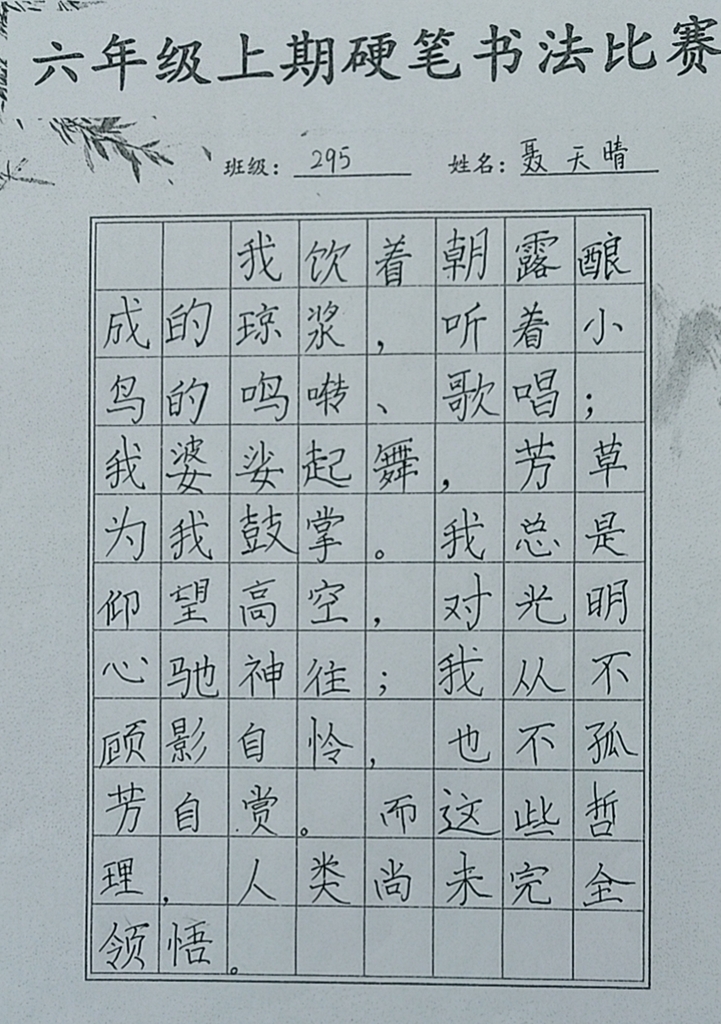 六年级上期硬笔书法比赛
班级：295 姓名：聂天晴
我饮着朝露酿
成的琼浆，听着小
鸟的鸣啭、歌唱；
我婆娑起舞，芳草
为我鼓掌。我总是
仰望高空，对光明
心驰神往；我从不
顾影自怜，也不孤
芳自赏。而这些哲
理，人类尚未完全
领悟。